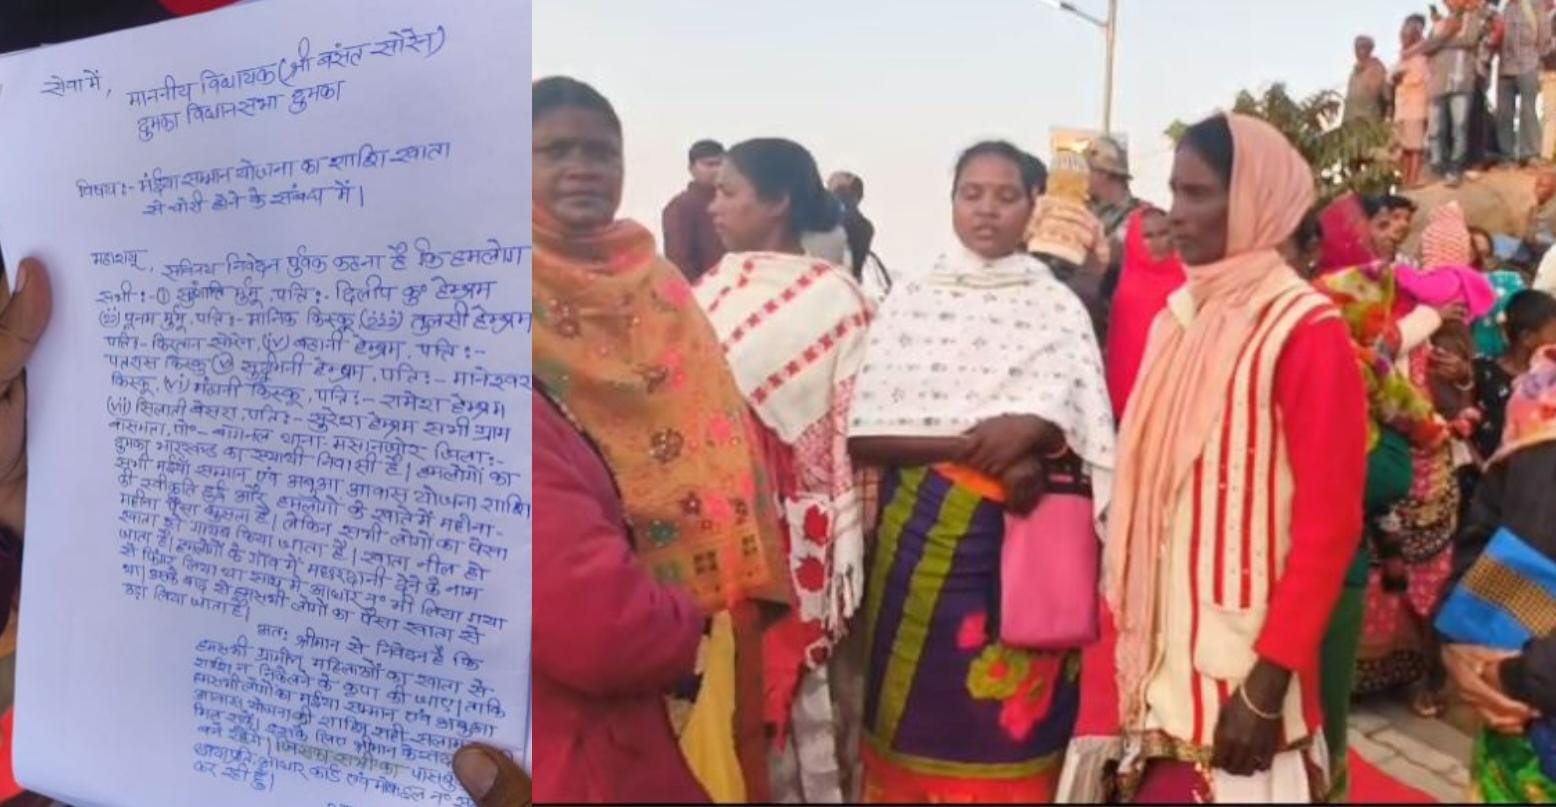 सेवा में,
माननीय विधायक (श्री बसंत सोरेन)
दुमका विधानसभा दुमका
विषय:- मंईया सम्मान योजना का राशि खाता
से चोरी होने के संबंध में।
महाशय,
सविनय निवेदन पूर्वक कहना है कि हमलोग
सभी:- (i) मुर्मू, पति:- दिलीप कु० हेम्ब्रम
(ii) पूनम मुर्मू, पति:- मानिक किस्कू (iii) तुलसी हेम्ब्रम
पति:- सोरेन, (iv) हेम्ब्रम, पति:-
पतरास किस्कू (v) हेम्ब्रम, पति:- मानेश्वर
किस्कू, (vi) मंगनी किस्कू, पति:- रामेश हेम्ब्रम
(vii) बेसरा, पति:- सुरेश हेम्ब्रम सभी ग्राम
पो०- थाना- मसानजोर जिला:-
दुमका झारखण्ड का स्थायी निवासी है। हमलोगों का
सभी मंईया सम्मान एवं अबुआ आवास योजना राशि
की स्वीकृति हुई और हमलोगों के खाते में महीना-
महीना पैसा घुसता है। लेकिन सभी लोगों का पैसा
खाता से गायब किया जाता है। खाता नील हो
जाता है। हमलोगों के गाँव में मच्छरदानी देने के नाम
से फिंगर लिया था साथ में आधार न० भी लिया गया
था। उसके बाद से हमसभी लोगों का पैसा खाता से
उड़ा लिया जाता है।
अत: श्रीमान से निवेदन है कि
हमसभी ग्रामीण महिलाओं का खाता से
राशि न निकलने के कृपा की जाए। ताकि
हमसभी लोगों का मंईया सम्मान एवं अबुआ
आवास योजना की राशि सही सलामत
मिल सके। इसके लिए श्रीमान के सदा
बने रहेंगे। जिसका सभी का
छायाप्रति, आधार कार्ड एवं मोबाइल न०
कर रही हूँ।